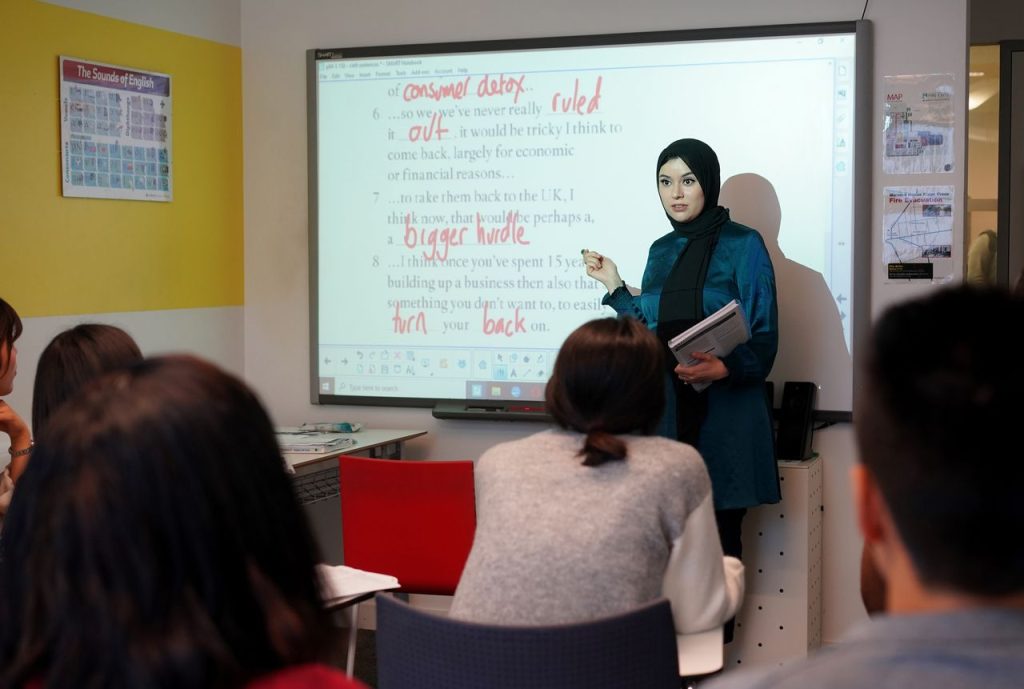 The Sounds of English
SMART Notebook
File Edit View Insert Format Tools Add-ons Account Help
of consumer detox..
6 ...so we, we've never really ruled
it out, it would be tricky I think to
come back, largely for economic
or financial reasons...
7 ...to take them back to the UK, I
think now, that would be perhaps a,
a bigger hurdle
8 ...I think once you've spent 15
building up a business then also that
something you don't want to, to easily
turn your back on.
Type here to search
MAP
Fire Evacuation